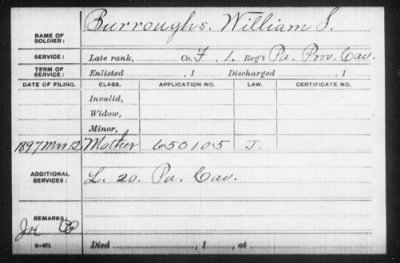 NAME OF SOLDIER: Burroughs, William S.
SERVICE: Late rank, Co. F 1. Reg't Pa. Prov. Cav.
TERM OF SERVICE: Enlisted , 1 Discharged , 1
DATE OF FILING. CLASS. APPLICATION NO. LAW. CERTIFICATE NO.
Invalid,
Widow,
Minor,
1897 Mar. 12 Mother 650105 J.
ADDITIONAL SERVICES: L. 20. Pa. Cav.
REMARKS:
Died , 1 , at